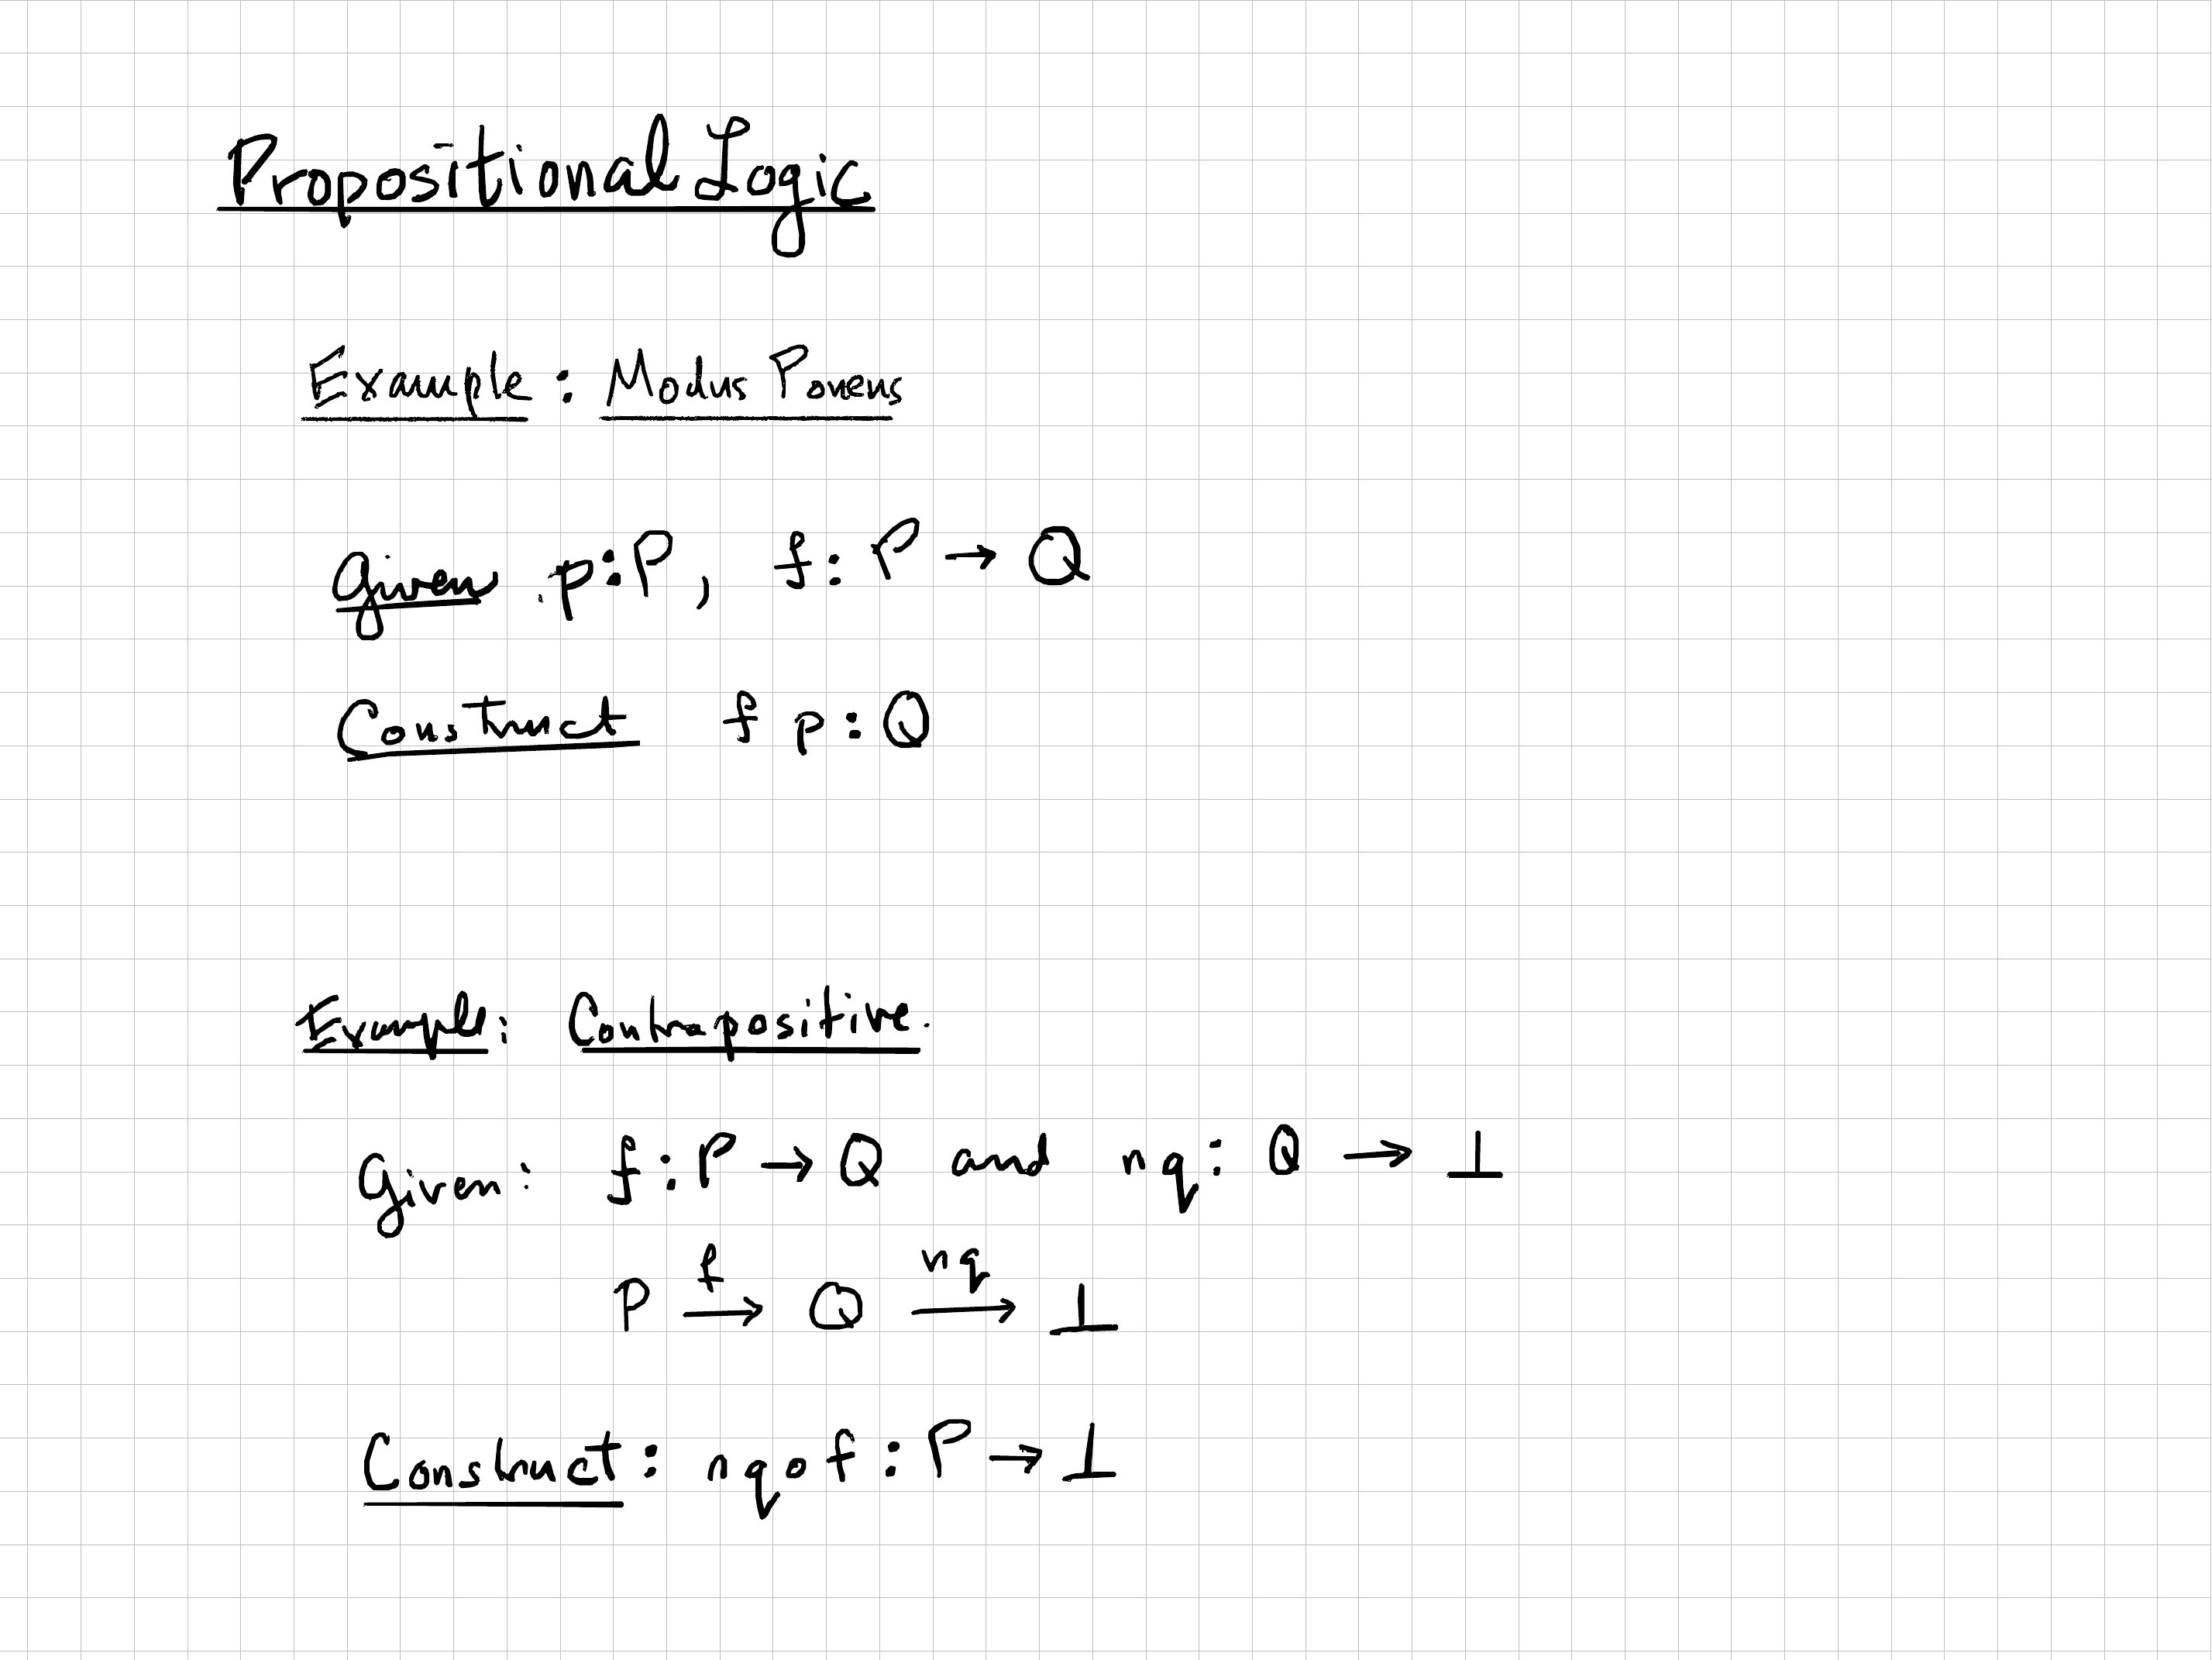 Propositional Logic
Example: Modus Ponens
Given p:P, f: P → Q
Construct f p: Q
Example: Contrapositive.
Given: f: P → Q and nq: Q → ⊥
P —f→ Q —nq→ ⊥
Construct: nq ∘ f : P → ⊥